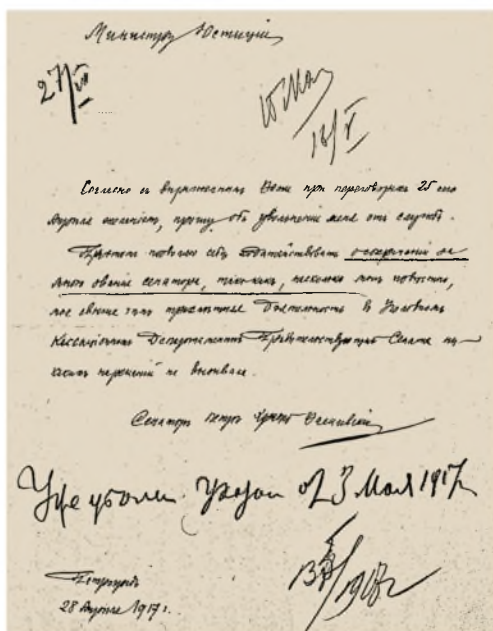 Министру Юстиціи
Согласно съ выраженнымъ Вами при переговорахъ 25 сего
Апрѣля желаніемъ, прошу объ увольненіи меня отъ службы.
Притомъ позволяю себѣ ходатайствовать о сохраненіи за
мною званія сенатора, такъ какъ, насколько мнѣ извѣстно,
моя свыше чѣмъ трехлѣтняя дѣятельность въ Уголовномъ
Кассаціонномъ Департаментѣ Правительствующаго Сената ни-
какихъ нареканій не вызывала.
Сенаторъ Петръ
Указом от 23 Мая 1917 г.
Петроградъ
28 Апрѣля 1917 г.